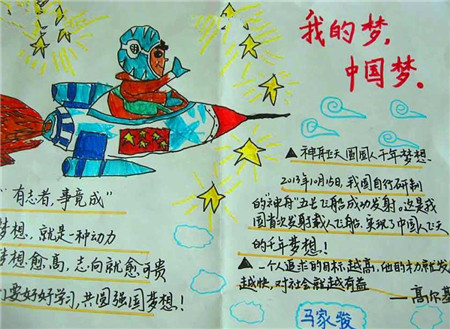 我的梦,
中国梦。
"有志者,事竟成"
梦想,就是一种动力
梦想愈高,志向就愈可贵
们要好好学习,共圆强国梦想
▲神舟飞天圆国人千年梦想
年10月15日,我国自行研制
的"神舟"五号飞船成功发射。这是我
国首次发射载人飞船。实现了中国人飞天
的千年梦想!
▲一个人追求的目标越高,他的才能发
越快,对社会就越有益
——高尔基
马家骏